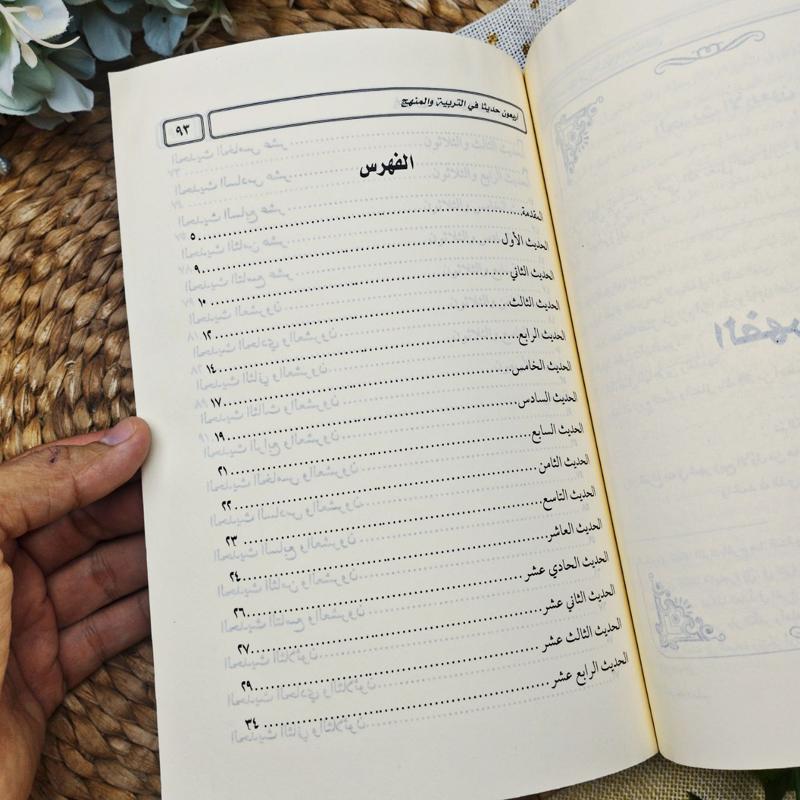 أربعون حديثا في التربية والمنهج ٩٣
الفهرس
المقدمة ٥
الحديث الأول ٩
الحديث الثاني ١٠
الحديث الثالث ١٢
الحديث الرابع ١٤
الحديث الخامس ١٧
الحديث السادس ١٩
الحديث السابع ٢١
الحديث الثامن ٢٢
الحديث التاسع ٢٣
الحديث العاشر ٢٤
الحديث الحادي عشر ٢٦
الحديث الثاني عشر ٢٧
الحديث الثالث عشر ٢٩
الحديث الرابع عشر ٣٤